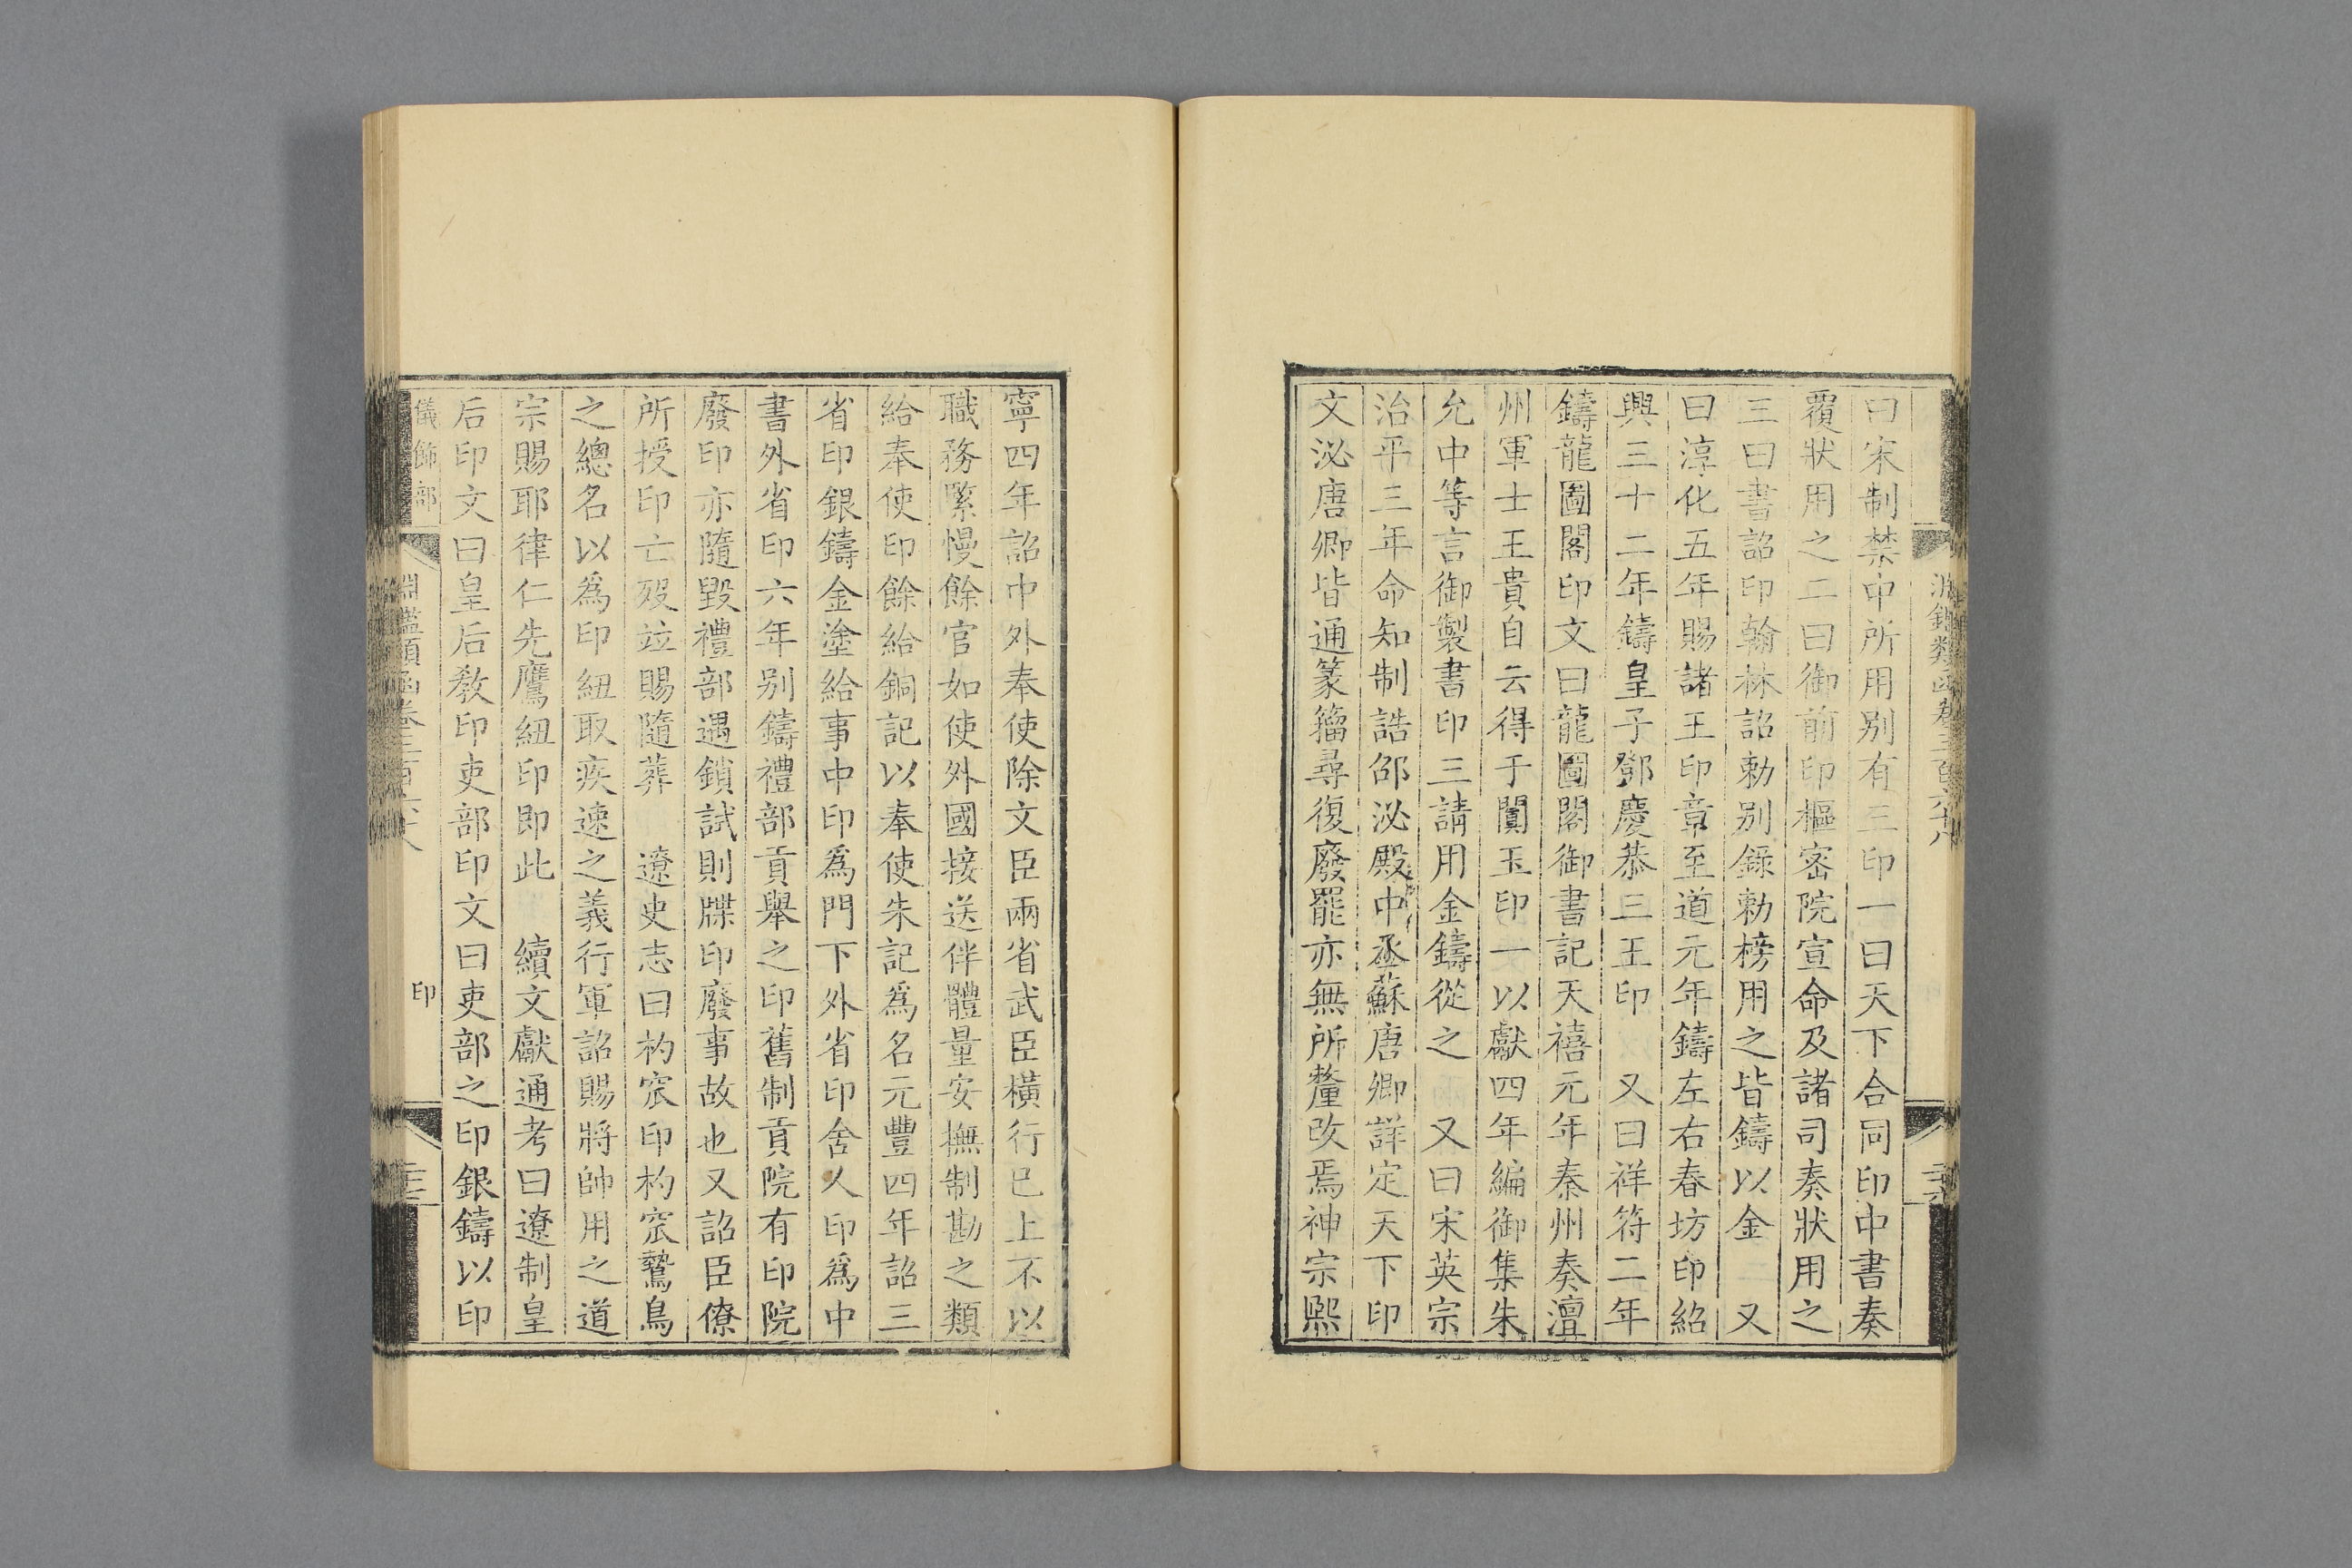 曰宋制禁中所用別有三印一曰天下合同印中書奏
覆狀用之二曰御前印樞密院宣命及諸司奏狀用之
三曰書詔印翰林詔勅別錄勅榜用之皆鑄以金　又
曰淳化五年賜諸王印章至道元年鑄左右春坊印紹
興三十二年鑄皇子鄧慶恭三王印　又曰祥符二年
鑄龍圖閣印文曰龍圖閣御書記天禧元年秦州奏澶
州軍士王貴自云得于闐玉印一以獻四年編御集朱
允中等言御製書印三請用金鑄從之　又曰宋英宗
治平三年命知制誥邵泌殿中丞蘇唐卿詳定天下印
文泌唐卿皆通篆籀尋復廢罷亦無所釐改焉神宗熙
寧四年詔中外奉使除文臣兩省武臣橫行已上不以
職務緊慢餘官如使外國接送伴體量安撫制勘之類
給奉使印餘給銅記以奉使朱記為名元豐四年詔三
省印銀鑄金塗給事中印為門下外省印舍人印為中
書外省印六年別鑄禮部貢舉之印舊制貢院有印院
廢印亦隨毀禮部遇鎖試則牒印廢事故也又詔臣僚
所授印亡歿竝賜隨葬　遼史志曰杓窊印杓窊鷙鳥
之總名以為印紐取疾速之義行軍詔賜將帥用之道
宗賜耶律仁先鷹紐印即此　續文獻通考曰遼制皇
后印文曰皇后教印吏部印文曰吏部之印銀鑄以印
儀飾部
淵鑑類函卷三百六十八
印